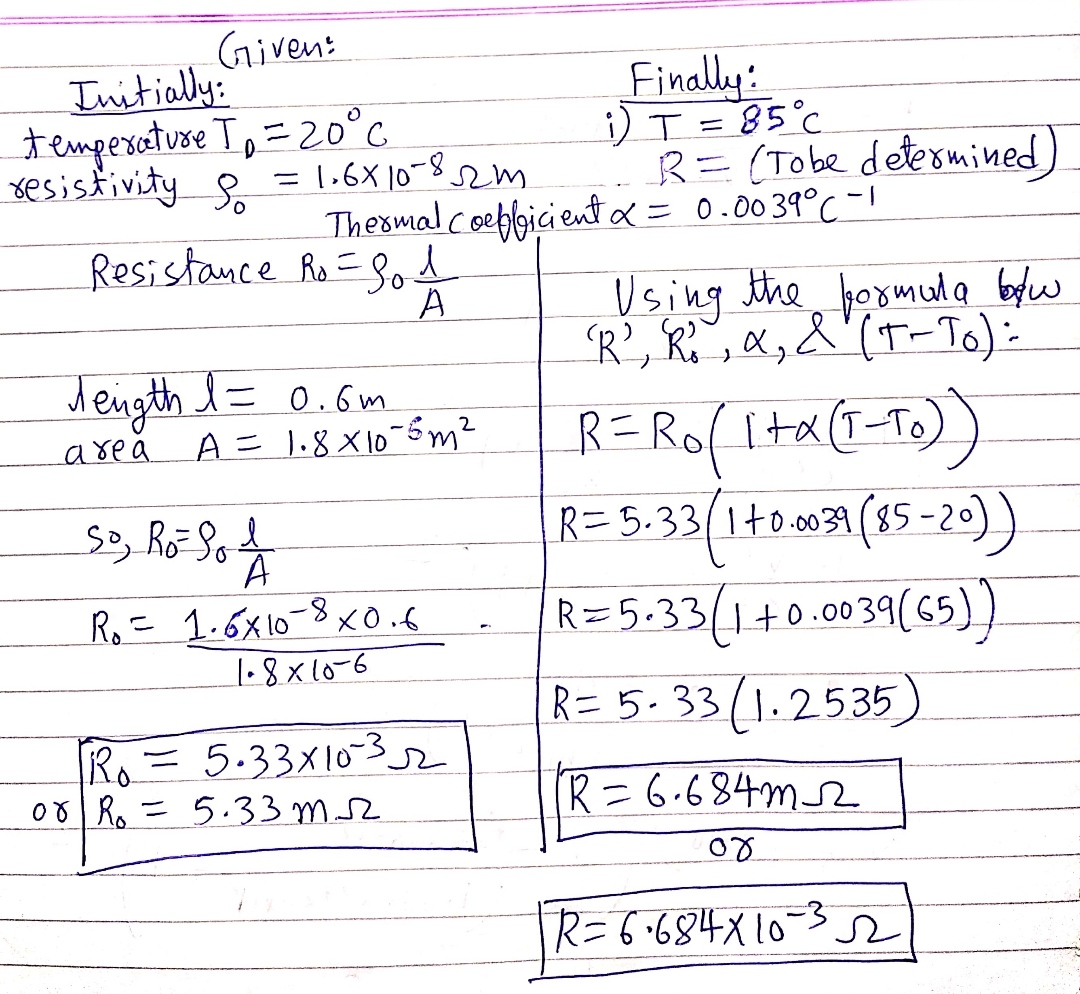 Given:
Initially:
temperature T₀ = 20°C
resistivity ρ₀ = 1.6×10⁻⁸ Ωm
Finally:
i) T = 85°C
R = (To be determined)
Thermal coefficient α = 0.0039°C⁻¹
Resistance R₀ = ρ₀ l/A
length l = 0.6m
area A = 1.8×10⁻⁶m²
so, R₀=ρ₀ l/A
R₀ = 1.6×10⁻⁸×0.6
1.8×10⁻⁶
R₀ = 5.33×10⁻³Ω
or R₀ = 5.33 mΩ
Using the formula b/w
'R', 'R₀', α, & (T-T₀):
R=R₀(1+α(T-T₀))
R=5.33(1+0.0039(85-20))
R=5.33(1+0.0039(65))
R=5.33(1.2535)
R=6.684mΩ
or
R=6.684×10⁻³Ω